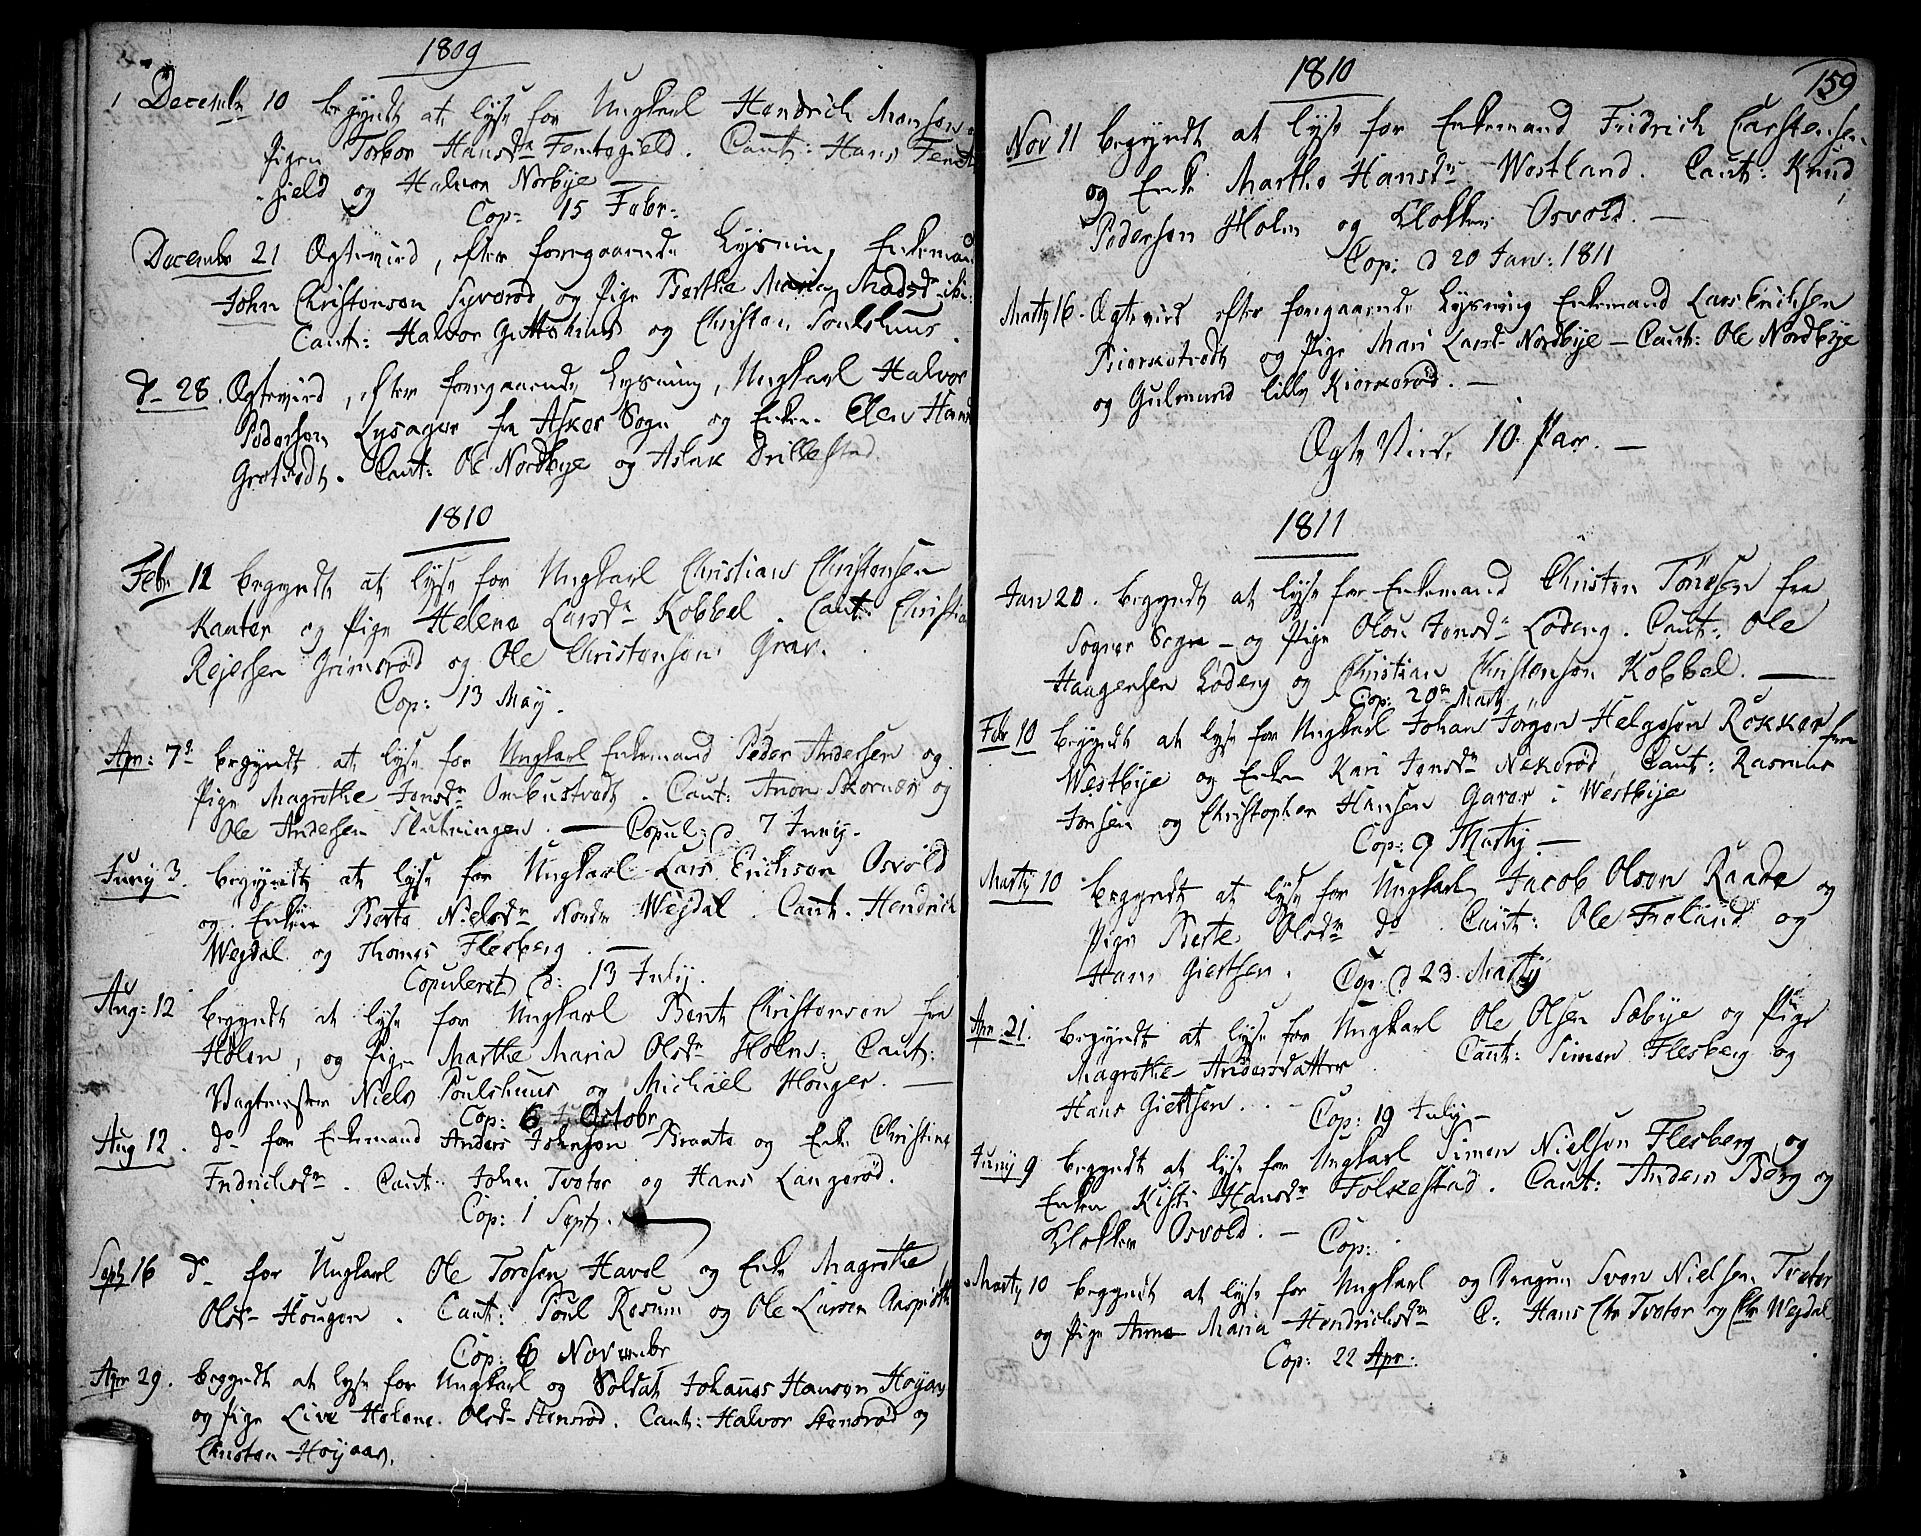 1809
Decembr 10 begyndt at lyse for Ungkarl Hendrich Monsen
Pigen Torbor Hansdr Femtegield. Caut: Hans Femte
gield og Halvor Norbye
Cop: 15 Febr:
December 21 Ægteviid, efter foregaaende Lysning, Enkemand
John Christensen Syverød og Pige Berthe Maria Madsdr
Caut: Halvor Guttshuus og Christen Poulshuus.
d- 28. Ægteviid, efter foregaaende Lysning, Ungkarl Halvor
Pedersen Lysager fra Asker Sogn og Enken Elen Hansdr
Grøtvedt. Caut: Ole Nordbye og Aslak Drillestad
1810
Febr 12 begyndt at lyse for Ungkarl Christian Christensen
Kanter og Pige Helene Larsdr Kobbel. Caut: Christian
Rejersen Grimsrød og Ole Christensen Grav.
Cop: 13 May.
Apr: 7de begyndt at lyse for Ungkarl Enkemand Peder Andersen og
Pige Magrethe Jensdr Ombustvedt. Caut: Anon Skorner og
Ole Andersen Slutningen. — Copul: d 7 Juny.
Juny 3. begyndt at lyse for Ungkarl Lars Erichsen Osvold
og Enken Berte Nielsdr Nordr Wejdal. Caut. Hendrich
Wejdal og Thomas Flesberg. —
Copuleret d: 13 July.
Aug: 12 begyndt at lyse for Ungkarl Bent Christensen fra
Hølen, og Pige Marthe Maria Olsdr Holm: Caut:
Vagtmester Niels Poulshuus og Michael Houger. —
Cop: 6 Octobr
Aug 12. do for Enkemand Anders Johnsen Braate og Enke Christine
Fridrichsdr. Caut: John Tveter og Hans Langerød.
Cop: 1 Sept.
Sept 16 d- for Ungkarl Ole Toresen Havel og Enke Magrethe
Olsdr Hougen. Caut: Poul Rosum og Ole Larsen Aaspestet
Cop: 6 Novembr
Apr 29. begyndt at lyse for Ungkarl og Soldat Johanes Hansen Høyaas
og Pige Live Helene Olsdr Stensrød. Caut: Halvor Stensrød og
Christen Høyaas.
1810
159
Nov 11 begyndt at lyse for Enkemand Fridrich Carstensen
og Enke Marthe Hansdr Westland. Caut: Knud
Pedersen Holm og Klokker Osvold. —
Cop: d 20 Jan: 1811
Marty 16. Ægteviid efter foregaaende Lysning Enkemand Lars Erichsen
Bierketvedt og Pige Mari Larsdr Nordbye — Caut: Ole Nordbye
og Gulmund lille Kierkerød. —
Ægte Viede 10 Par. —
1811
Jan 20. begyndt at lyse for Enkemand Christen Tønesen fra
Sogner Sogn — og Pige Olou Jensdr Lødeng. Caut: Ole
Haagensen Lødeng og Christian Christensen Kobbel. —
Cop: 20de Marty
Febr 10 begyndt at lyse for Ungkarl Johan Jørgen Helgesen Røkker fra
Westbye og Enke Kari Jensdr Nekerød. Caut: Rasmus
Jensen og Christopher Hansen Garer i Westbye
Cop: 9 Marty. —
Marty 10 begyndt at lyse for Ungkarl Jacob Olsen Raade og
Pige Berte Olsdr do. Caut: Ole Frøland og
Hans Giertsen. Cop: d 23 Marty
Apr: 21. begyndt at lyse for Ungkarl Ole Olsen Sebye og Pige
Magrethe Andersdatter. Caut: Simen Flesberg og
Hans Giertsen. — Cop: 19 July —
Juny 9 begyndt at lyse for Ungkarl Simen Nielsen Flesberg og
Enken Kisti Hansdr Folkestad. Caut: Anders Berg og
Klokker Osvold. — Cop:
Marty 10 begyndt at lyse for Ungkarl og Dragun Sven Nielsen Tveter
og Pige Anne Maria Hendrichsdr C: Hans Chr Tveter og Chr Wejdal
Cop: 22 Apr: